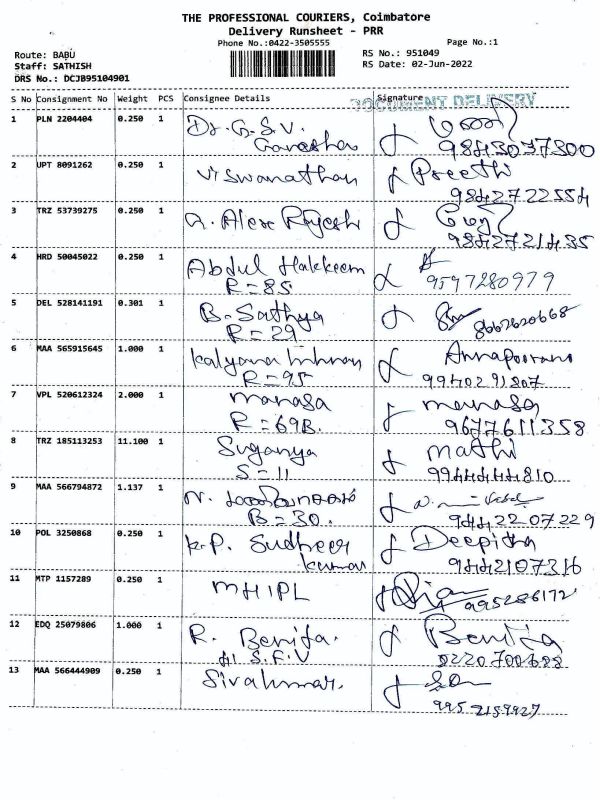 THE PROFESSIONAL COURIERS, Coimbatore
Delivery Runsheet - PRR
Phone No.:0422-3505555 Page No.:1
Route: BABU RS No.: 951049
Staff: SATHISH RS Date: 02-Jun-2022
DRS No.: DCJB95104901
DOCUMENT DELIVERY
S No Consignment No Weight PCS Consignee Details Signature
1 PLN 2204404 0.250 1 Dr. G. S. V.
Ganeshan 9843037300
2 UPT 8091262 0.250 1 Viswanathan Preethi
9842722554
3 TRZ 53739275 0.250 1 A. Alex Rajesh
9842721435
4 HRD 50045022 0.250 1 Abdul Hakkeem
R = 85 9597280979
5 DEL 528141191 0.301 1 B. Sathya
R = 29 8662620668
6 MAA 565915645 1.000 1 Annapoorani
R = 95 9940291807
7 VPL 520612324 2.000 1 manasa manasa
R = 69B. 9677611358
8 TRZ 185113253 11.100 1 Suganya mathi
S = 11 9944444810
9 MAA 566794872 1.137 1 N.
B = 30. 94442207229
10 POL 3250868 0.250 1 K.P. Sudheer Deepitha
kumar 9442107316
11 MTP 1157289 0.250 1 MHIPL 995286172
12 EDQ 25079806 1.000 1 R. Benita. Benita
S.F.V 8220700688
13 MAA 566444909 0.250 1 Sivakumar.
9952159927